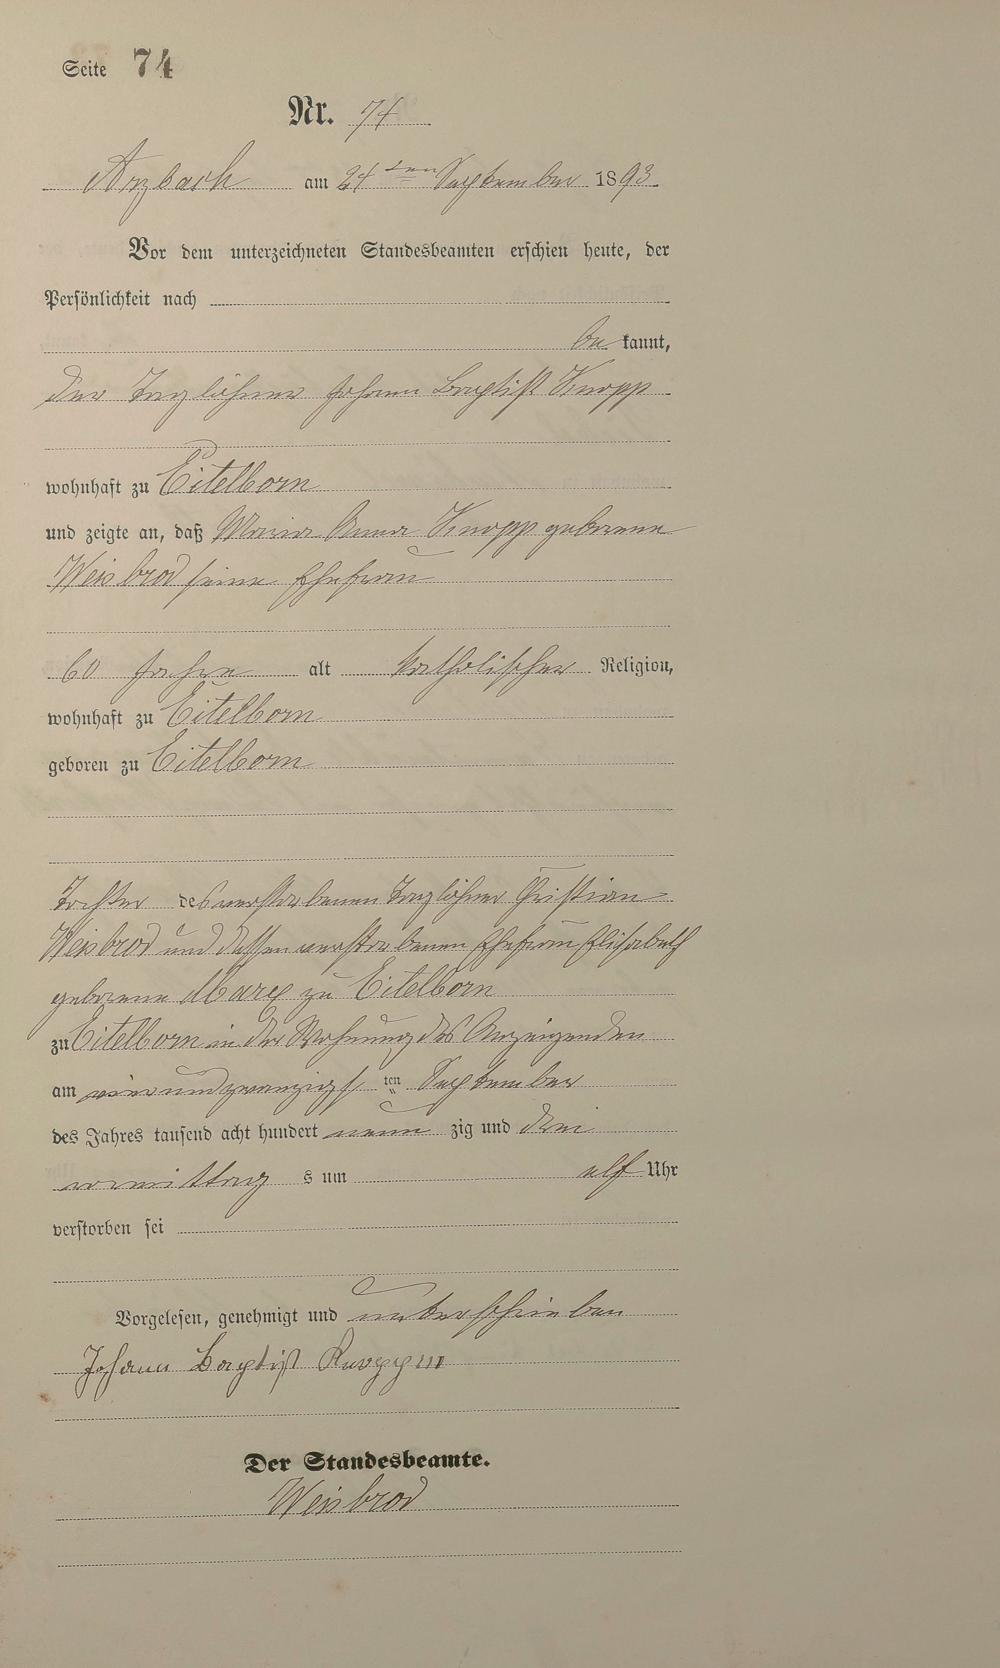 Seite 74
Nr. 74
Arzbach am 24 ten September 1893
Vor dem unterzeichneten Standesbeamten erschien heute, der
Persönlichkeit nach
be kannt,
der Taglöhner Johann Baptist Knopp
wohnhaft zu Eitelborn
und zeigte an, daß Maria Anna Knopp geborene
Weisbrod seine Ehefrau
60 Jahre alt katholischer Religion,
wohnhaft zu Eitelborn
geboren zu Eitelborn
Tochter des verstorbenen Taglöhner Christian
Weisbrod und dessen verstorbenen Ehefrau Elisabeth
geborene zu Eitelborn
zu Eitelborn in der Wohnung des Anzeigenden
am vierundzwanzigs ten September
des Jahres tausend acht hundert neun zig und drei
vormittag s um elf Uhr
verstorben sei
Vorgelesen, genehmigt und unterschrieben
Johann Baptist
Der Standesbeamte.
Weisbrod